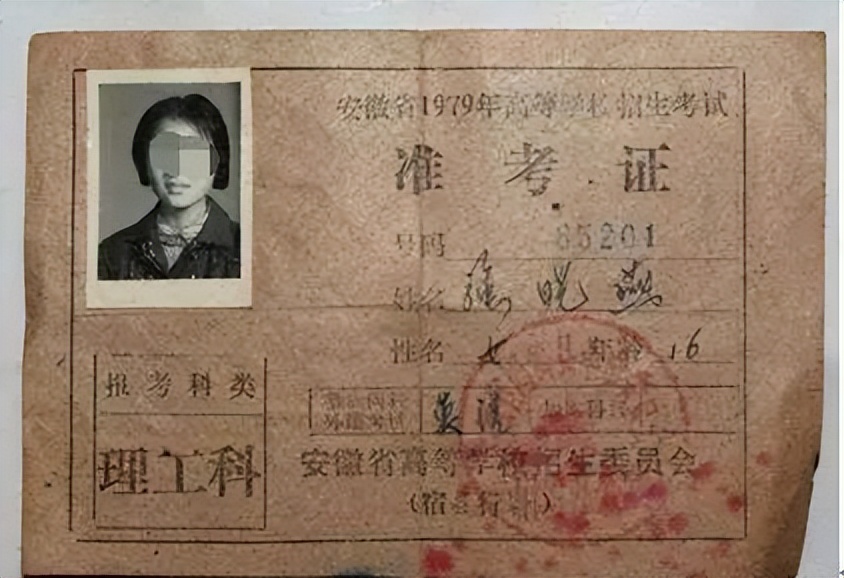 安徽省1979年高等学校招生考试
准考证
号码 85201
姓名 张晓燕
性名 女 年龄 16
报考科类
理工科
英语
安徽省高等学校招生委员会